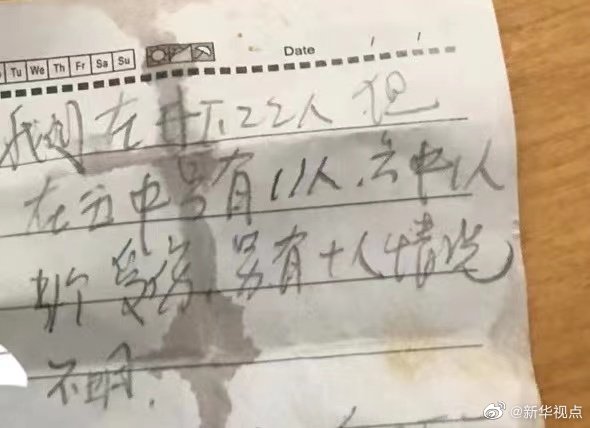 Tu We Th Fr Sa Su Date
我们在井下22人 但
在五中号有11人，其中1人
受伤，另有十人情况
不明．
@新华视点